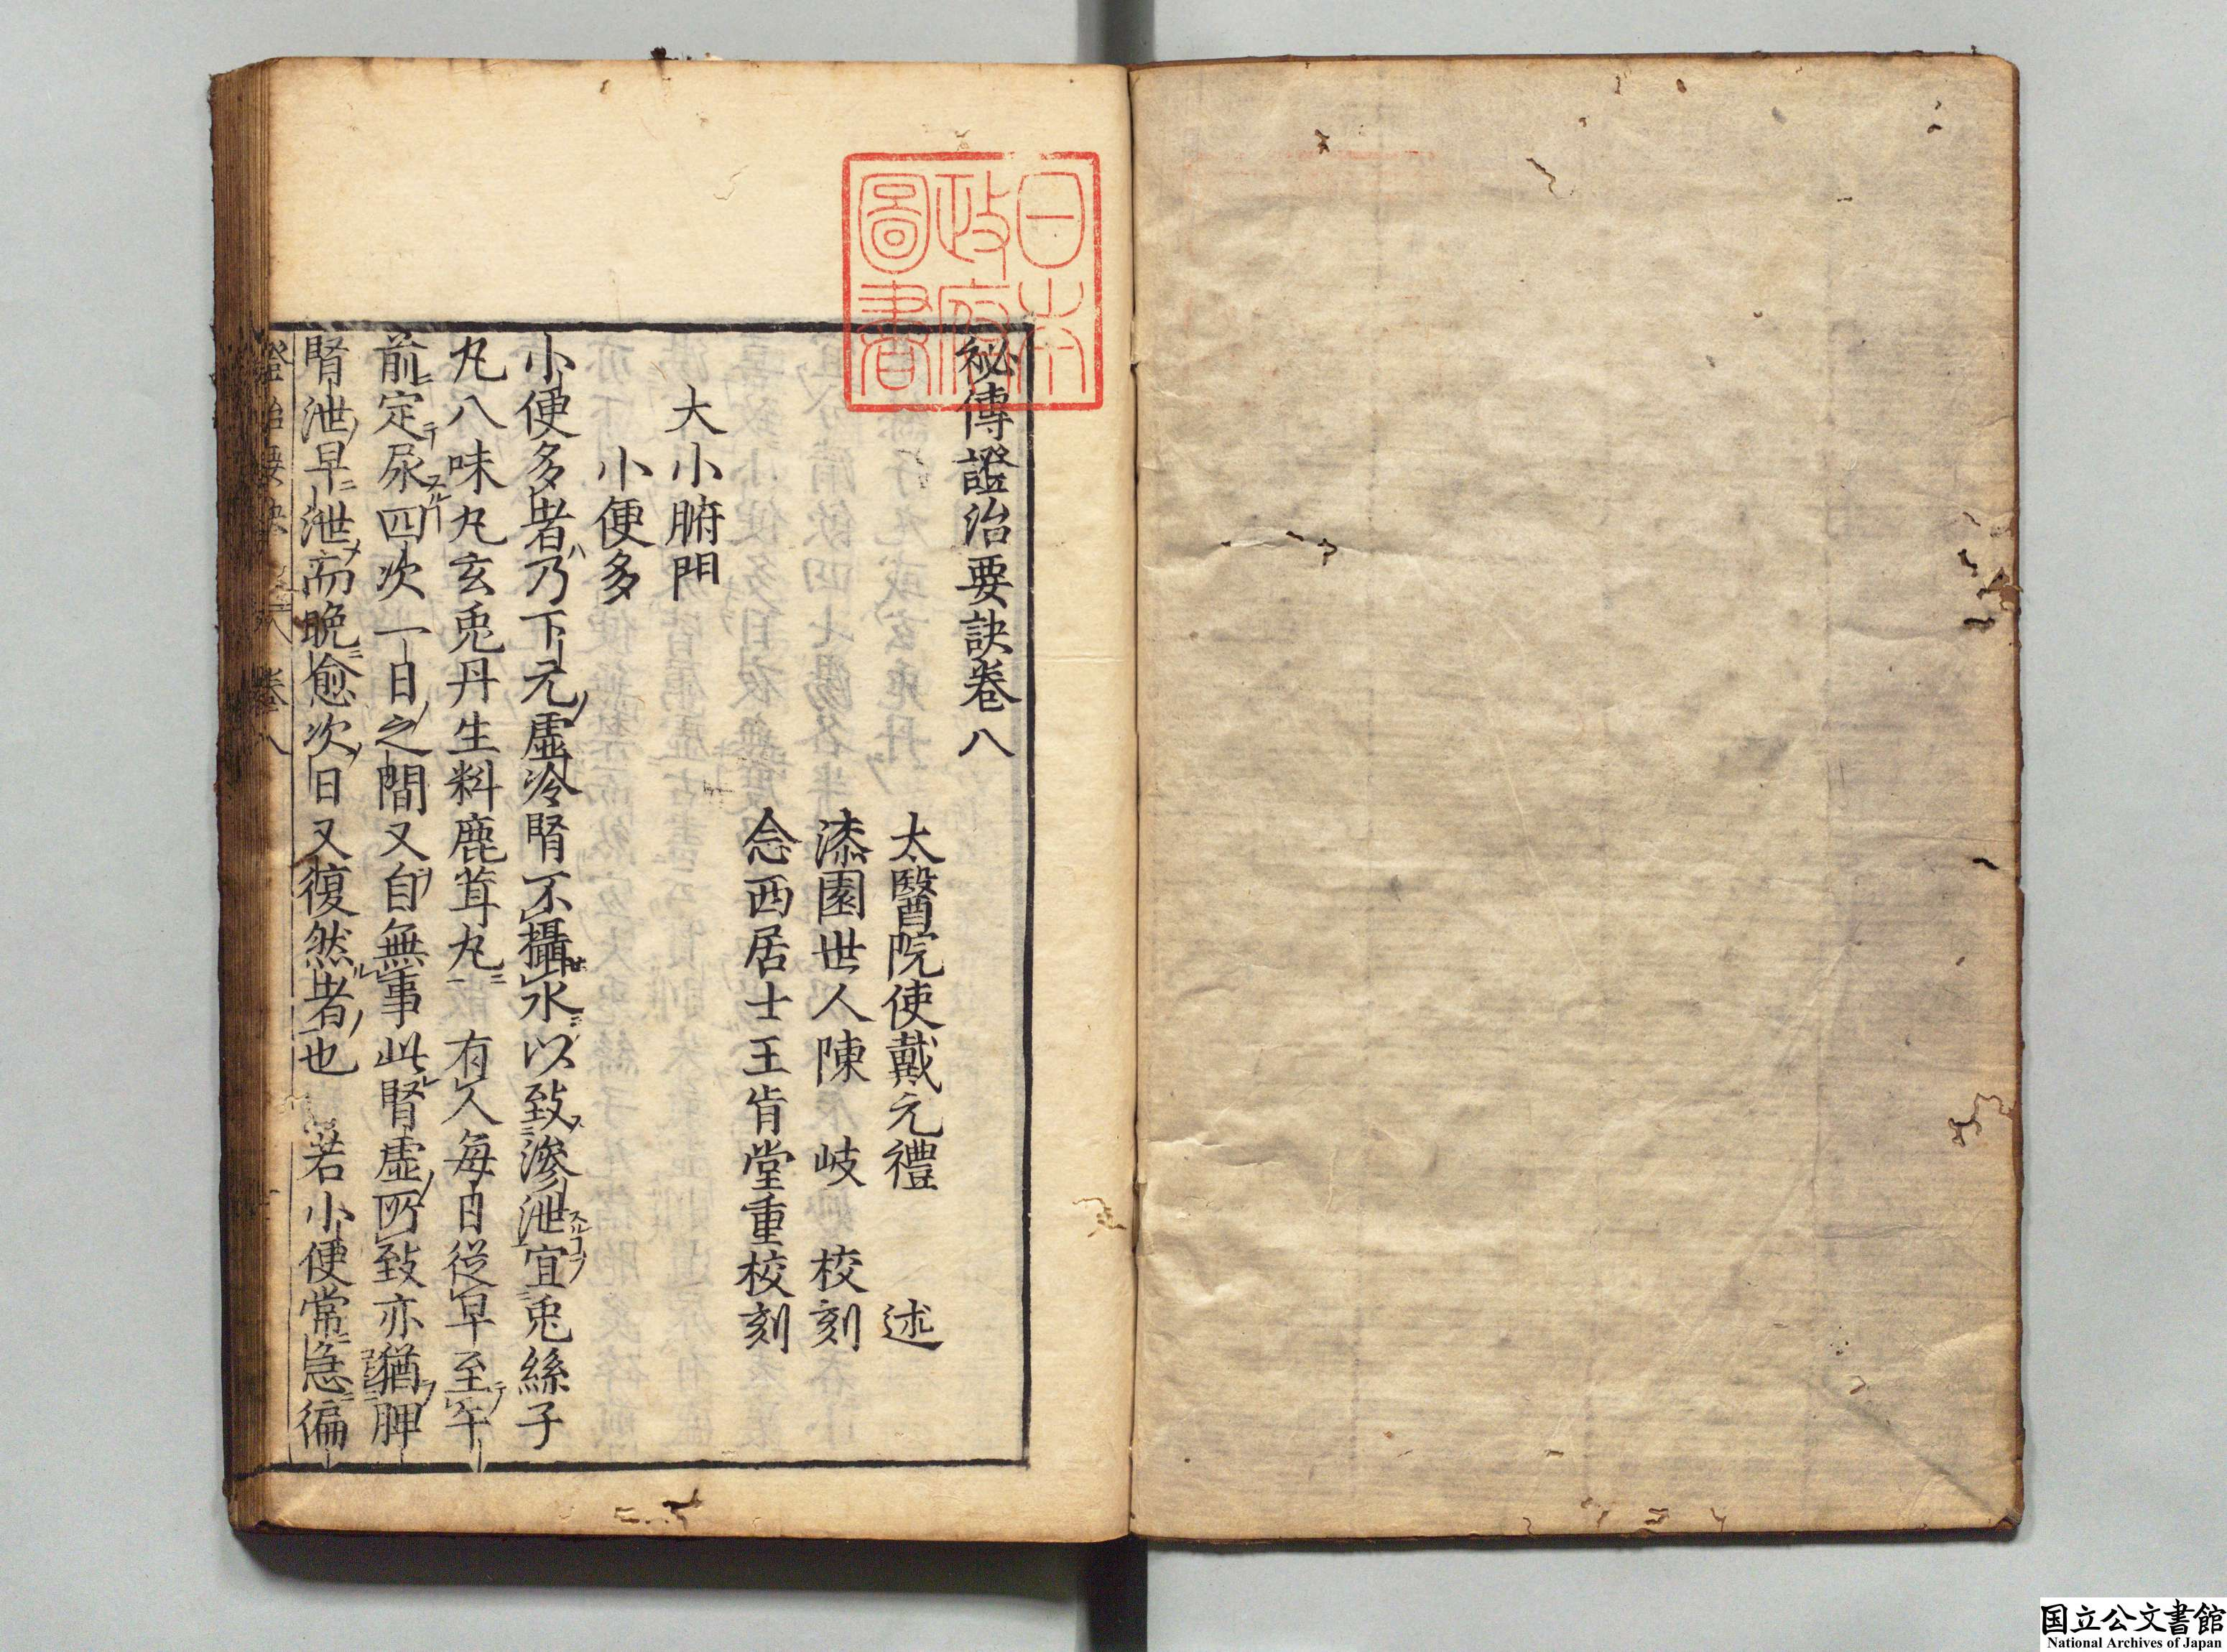 日本
政府
圖書
祕傳證治要訣卷八
太醫院使戴元禮 述
漆園世人陳 岐 校刻
念西居士王肯堂重校刻
大小腑門
小便多
小便多者乃下元虛冷腎不攝水以致滲泄宜兎絲子
丸八味丸玄兎丹生料鹿茸丸 有人每日從早至午
前定尿四次一日之間又自無事此腎虛所致亦猶脾
腎泄早泄而晚愈次日又復然者也 若小便常急徧
國立公文書館
National Archives of Japan